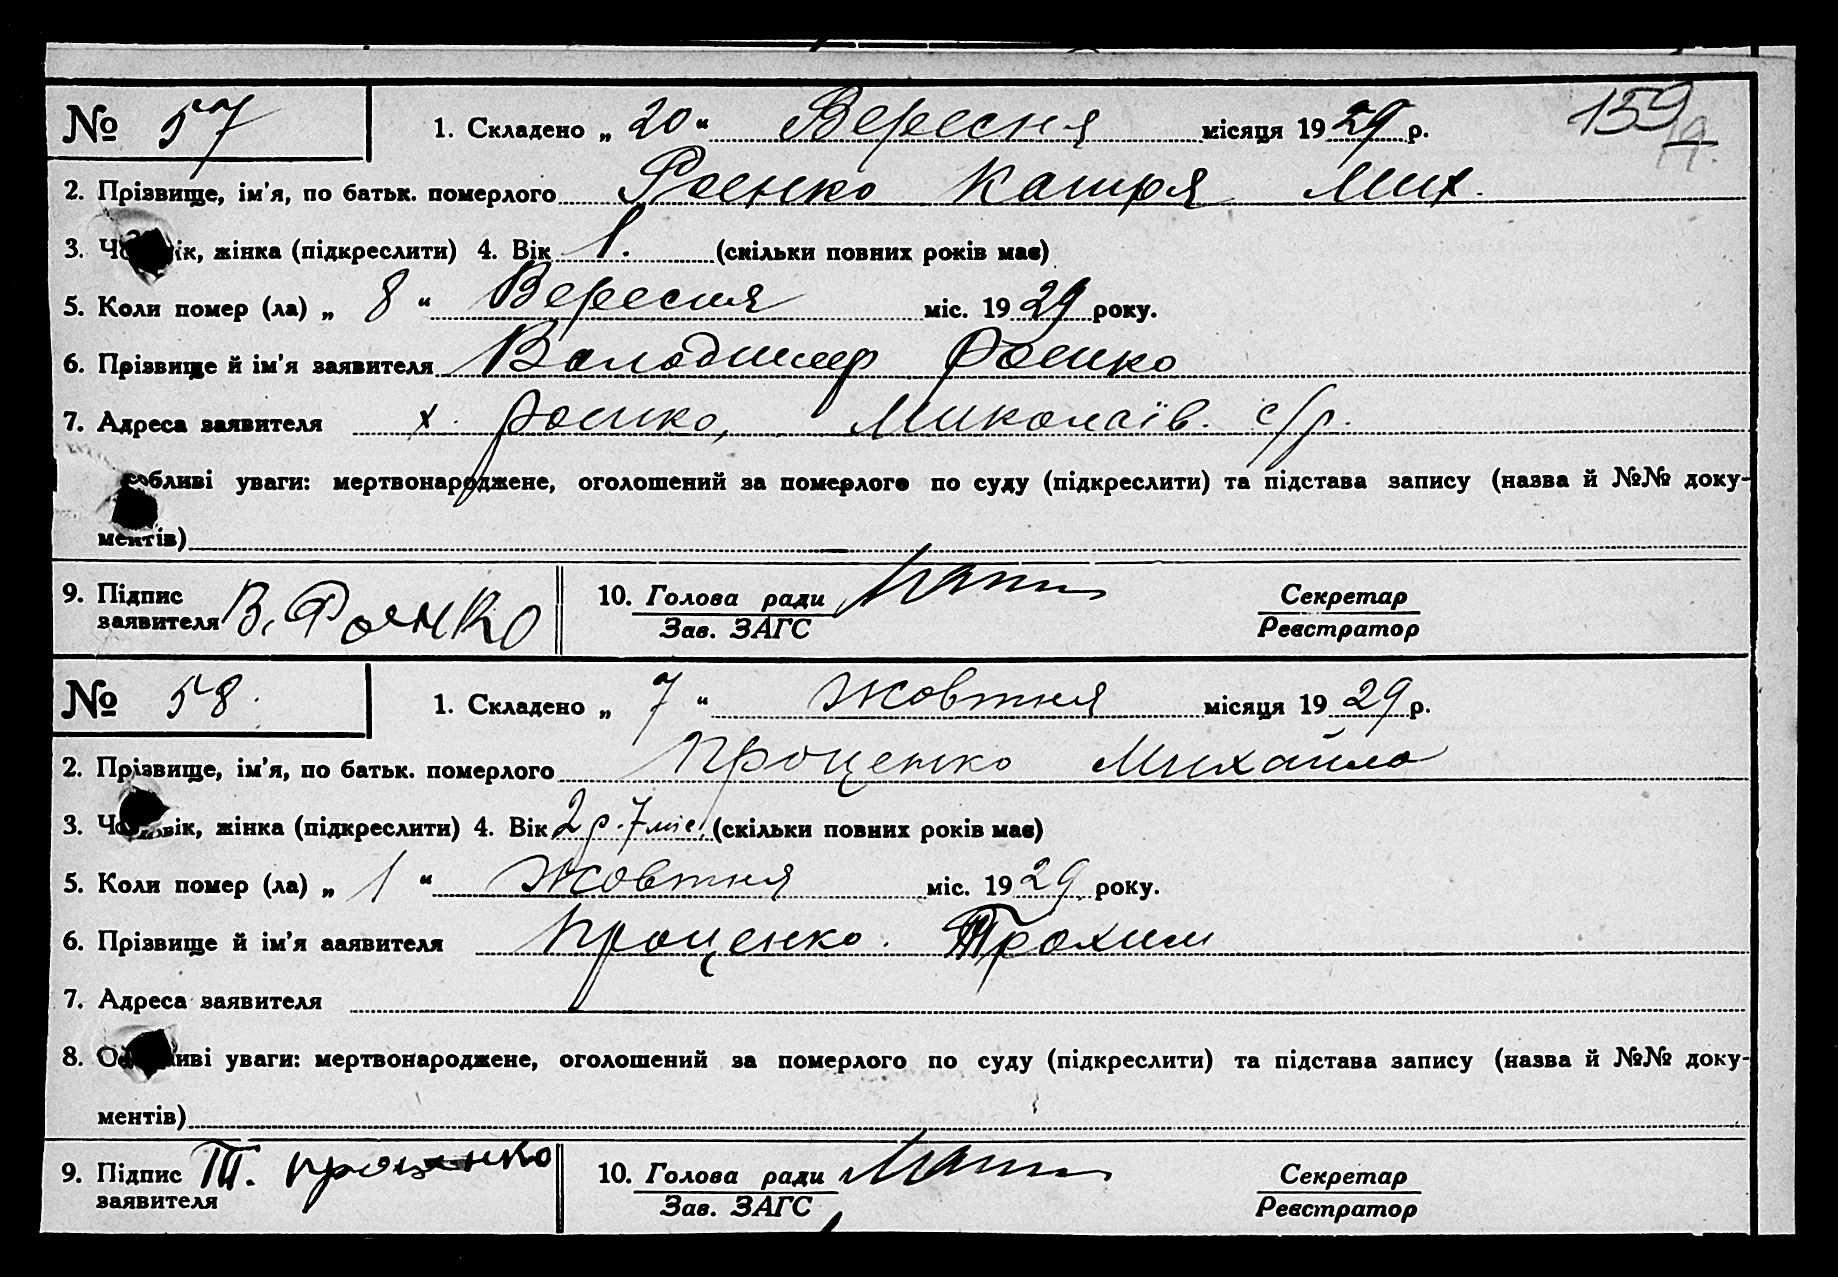 № 57 1. Складено „ 20 “ Вересня місяця 1929 р. 159
2. Прізвище, ім'я, по батьк. померлого Роенко Катря Мих.
3. Чоловік, жінка (підкреслити) 4. Вік 1. (скільки повних років має)
5. Коли помер (ла) „ 8 “ Вересня міс. 1929 року.
6. Прізвище й ім'я заявителя Володимер Роенко
7. Адреса заявителя х. Роенко, Миколаїв. с/р.
собливі уваги: мертвонароджене, оголошений за померлого по суду (підкреслити) та підстава запису (назва й №№ доку-
ментів)
9. Підпис заявителя В. Роенко 10. Голова ради Секретар
Зав. ЗАГС Реєстратор
№ 58. 1. Складено „ 7 “ жовтня місяця 1929 р.
2. Прізвище, ім'я, по батьк. померлого Проценко Михайло
3. Чоловік, жінка (підкреслити) 4. Вік 2 р. 7 міс. (скільки повних років має)
5. Коли помер (ла) „ 1 “ жовтня міс. 1929 року.
6. Прізвище й ім'я ааявителя Проценко. Трохим
7. Адреса заявителя
8. Особливі уваги: мертвонароджене, оголошений за померлого по суду (підкреслити) та підстава запису (назва й №№ доку-
ментів)
9. Підпис заявителя Т. Проценко 10. Голова ради Секретар
Зав. ЗАГС Реєстратор